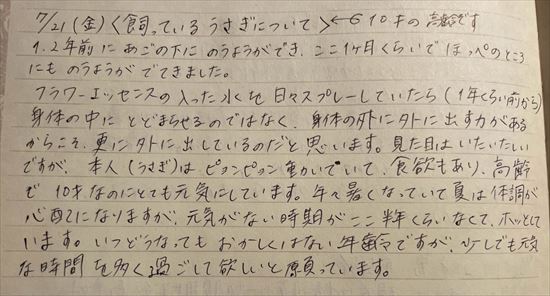 7/21(金)<飼っているうさぎについて>←10才の高齢です
1.2年前にあごの下にのうようができ、ここ1ヶ月くらいでほっぺのところ
にものうようがでてきました。
フラワーエッセンスの入った水を日々スプレーしていたら(1年くらい前から)
身体の中にとどまらせるのではなく、身体の外に外に出す力がある
からこそ、更に外に出しているのだと思います。見た目はいたいたしい
ですが、本人(うさぎ)はピョンピョン動いていて、食欲もあり、高齢
で10才なのにとても元気にしています。年々暑くなっていて夏は体調が
心配になりますが、元気がない時期がここ半年くらいなくて、ホッとして
います。いつどうなってもおかしくはない年齢ですが、少しでも元気
な時間を多く過ごして欲しいと願っています。